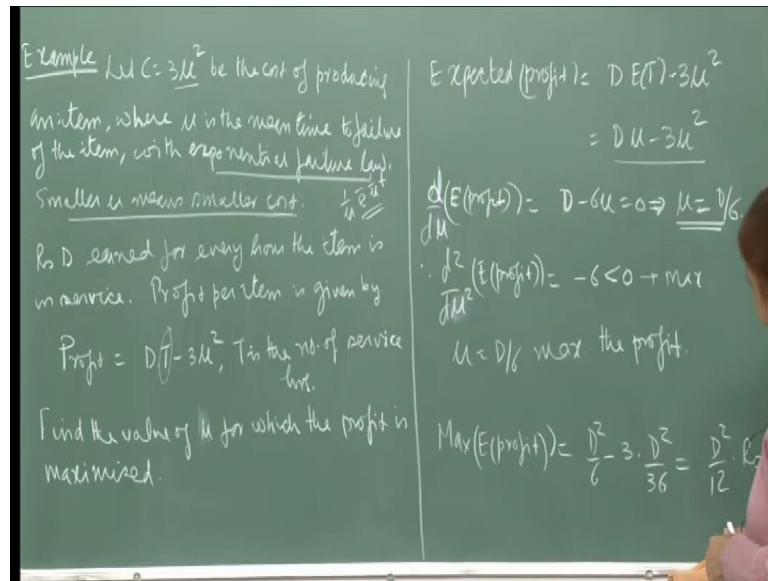 Example Let C = 3μ² be the cost of producing
an item, where μ is the mean time to failure
of the item, with exponential failure law.
Smaller μ means smaller cost.
Rs D earned for every hour the item is
in service. Profit per item is given by
Profit = DT - 3μ², T is the no. of service
hrs.
Find the value of μ for which the profit is
maximised.
Expected (profit) = D E(T) - 3μ²
= Dμ - 3μ²
d/dμ (E(profit)) = D - 6μ = 0 ⇒ μ = D/6.
∴ d²/dμ² (E(profit)) = -6 < 0 → max
μ = D/6 max. the profit.
Max(E(profit)) = D²/6 - 3 · D²/36 = D²/12 ·